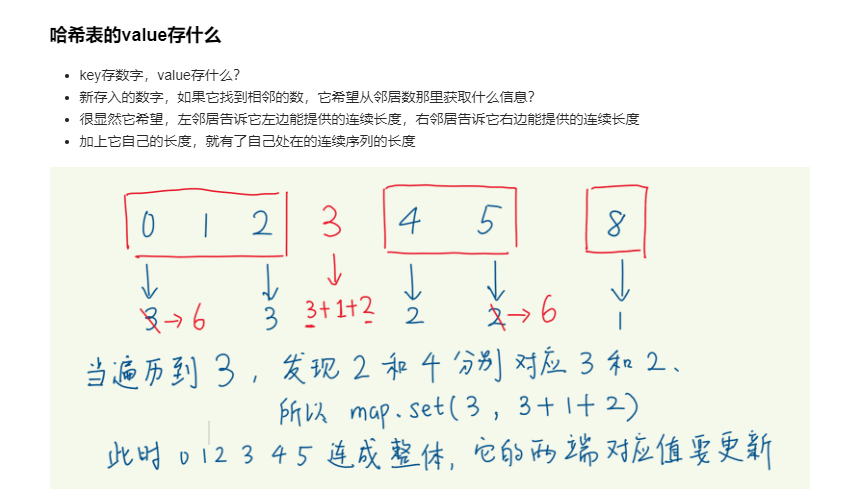 哈希表的value存什么
key存数字，value存什么？
新存入的数字，如果它找到相邻的数，它希望从邻居数那里获取什么信息？
很显然它希望，左邻居告诉它左边能提供的连续长度，右邻居告诉它右边能提供的连续长度
加上它自己的长度，就有了自己处在的连续序列的长度
0 1 2 3 4 5 8
3→6 3 3+1+2 2 2→6 1
当遍历到 3，发现 2 和 4 分别对应 3 和 2、
所以 map.set(3, 3+1+2)
此时 0 1 2 3 4 5 连成整体，它的两端对应值要更新